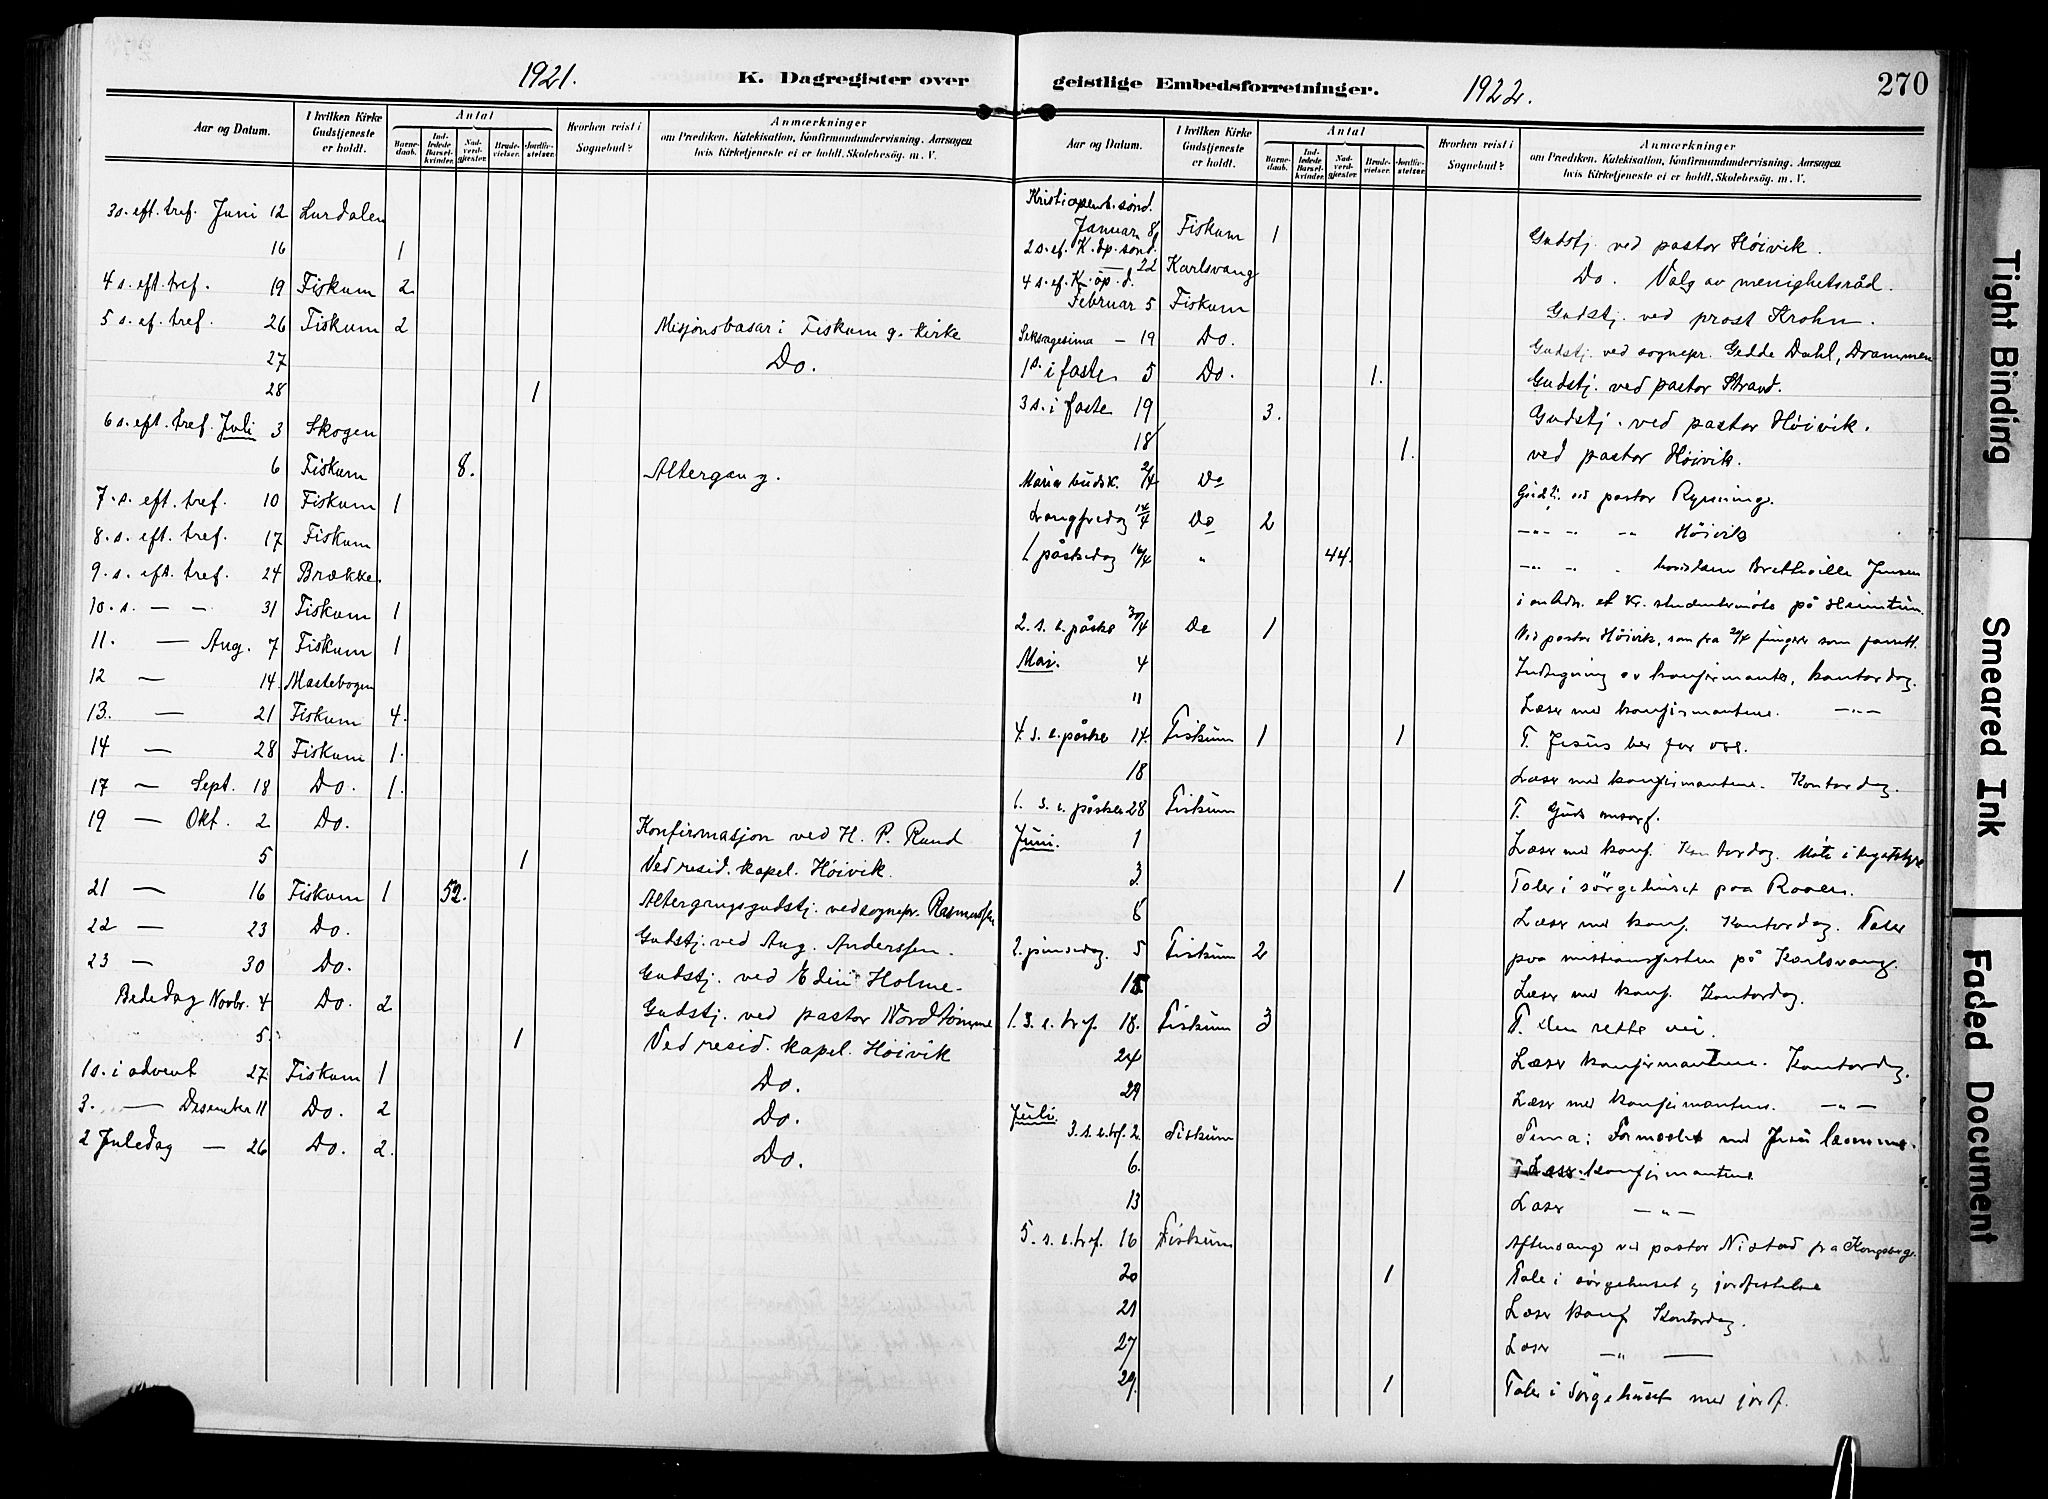 1921.
K. Dagregister over
Aar og Datum.
I hvilken Kirke Gudstjeneste er holdt.
Antal
Barnedaab.
Indledede Barselkvinder.
Nadverdgjester.
Brudevielser.
Jordfæstelser.
Hvorhen reist i Sognebud?
Anmærkninger
om Prædiken, Katekisation, Konfirmandundervisning, Aarsagen
hvis Kirketjeneste ei er holdt, Skolebesøg. m. V.
3 s. eft. tref. Juni 12 Lurdalen
16 1
4 s. eft. tref. 19 Fiskum 2
5 s. ef. tref. 26 Fiskum 2 Misjonsbasar i Fiskum g. Kirke
27 Do.
28 1
6 s. eft. tref. Juli 3 Skogen
6 Fiskum 8. Altergang.
7. s. eft. tref. 10 Fiskum 1
8. s. eft. tref. 17 Fiskum
9. s. eft. tref. 24 Brække.
10. s. — — 31 Fiskum 1
11. — Aug. 7 Fiskum 1
12 — 14. Mastebogen
13. — 21 Fiskum 4.
14 — 28 Fiskum 1.
17 — Sept. 18 Do. 1.
19 — Okt. 2 Do. Konfirmasjon ved H. P. Rund
5 1 Ved resid. kapel. Høivik.
21 — 16 Fiskum 1 52. Altergangsgudstj. ved sognepr. Rasmussen
22 — 23 Do. Gudstj. ved Aug. Anderssen.
23 — 30 Do. Gudstj. ved Edin Holme.
Bededag Novbr. 4 Do. 2 Gudstj. ved pastor Nordtømme
5. 1 Ved resid. kapel. Høivik
1 s. i advent 27. Fiskum 1 Do.
3. — Desember 11 Do. 2 Do.
2 Juledag — 26 Do. 2. Do.
geistlige Embedsforretninger.
1922.
270
Aar og Datum.
I hvilken Kirke Gudstjeneste er holdt.
Antal
Barnedaab.
Indledede Barselkvinder.
Nadverdgjester.
Brudevielser.
Jordfæstelser.
Hvorhen reist i Sognebud?
Anmærkninger
om Prædiken, Katekisation, Konfirmandundervisning, Aarsagen
hvis Kirketjeneste ei er holdt, Skolebesøg. m. V.
Kristi åpenb. sönd.
Januar 8 Fiskum 1 Gudstj. ved pastor Høivik.
2 s. ef. K. åp. sönd.
— 22 Karlsvang Do. Valg av menighetsråd.
4 s. ef. K. åp. d.
Februar 5 Fiskum Gudstj. ved prost Krohn.
Seksagesima — 19 Do. Gudstj. ved sognepr. Gedde Dahl, Drammen
1 s. i faste 5 Do. 1. Gudstj. ved pastor Strand.
3 s. i faste 19 3. Gudstj. ved pastor Høivik.
18 1. ved pastor Høivik.
Maria budsk. 2/4 Do Gudstj. ved pastor Rypsning.
Langfredag 14/4 Do 2 —"— " —"— Høivik
1 påskedag 16/4 " 44. —"— " " Bretteville Jensen
i anledn. et Kr. studentermöte på Heimtun.
2. s. e. påske 30/4 Do 1 Ved pastor Høivik, som fra 24/4 fungerer som
Mai. 4 Indtegning av konfirmanter, kontordag.
11 Læser med konfirmantene. —"—
4. s. e. påske 14. Fiskum 1 1 T. Jesus ber for oss.
18 Læser med konfirmantene. Kontordag.
1. s. e. påske 28 Fiskum T. Guds omsorg.
Juni. 1 Læser med konf. Kontordag. Möte i
3. 1 Taler i sörgehuset paa Raaen.
8 Læser med konf. Kontordag. Taler
2. pinsedag. 5 Fiskum 2 paa missionsfesten på Karlsvang.
15 Læser med konf. Kontordag.
1. s. e. tref. 18. Fiskum 3 T. Den rette vei.
24 Læser konfirmantene. Kontordag.
29 Læser med konfirmantene. —"—
Juli.
3. s. e. trf. 2. Fiskum Tema: Formaalet med Jesu komme.
6. Læser konfirmantene
13 Læser —"—
5. s. e. trf. 16 Fiskum Aftensang ved pastor Nistad fra Kongsberg.
20 1 Tale i sörgehuset og jordfestelse
21 Læser konf Kontordag.
27 Læser —"—
29. 1 Taler i Sörgehuset med jordf.
Tight Binding
Smeared Ink
Faded Document